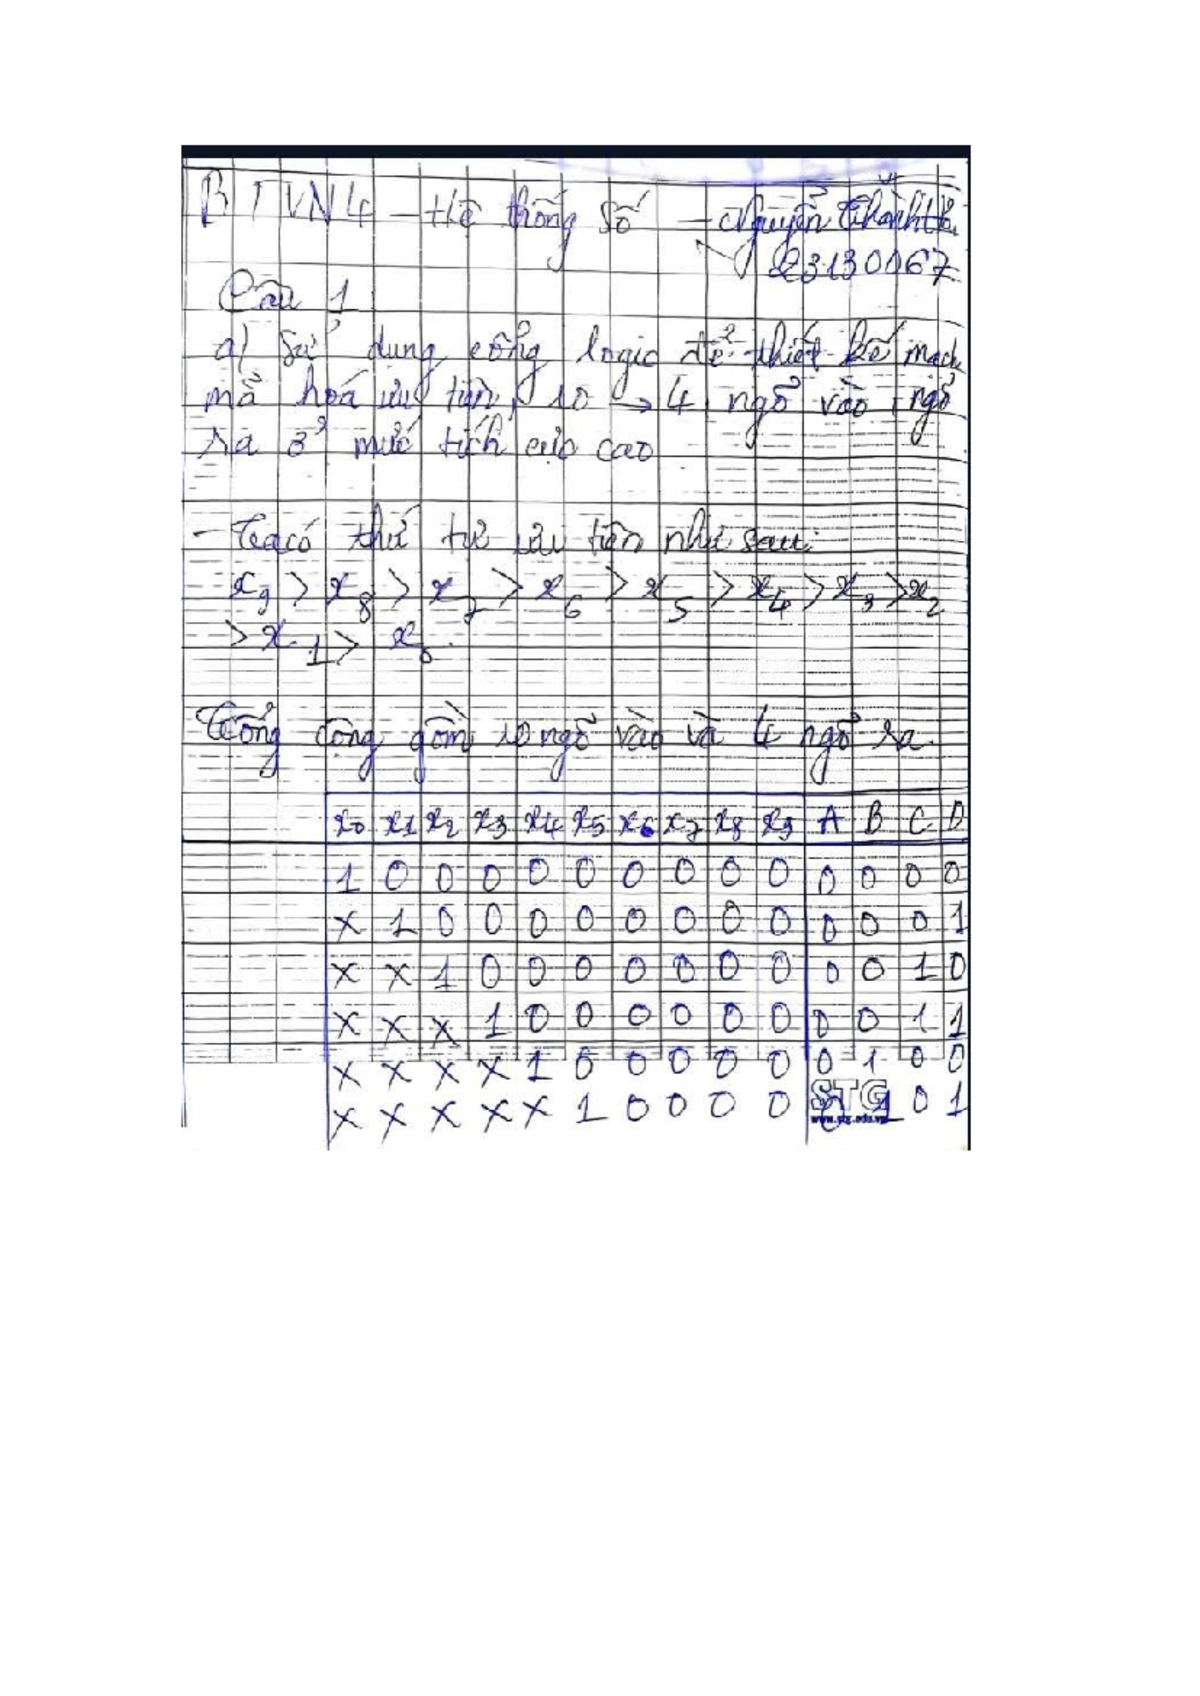 BTVN4 - Hệ thống số - Nguyễn Thành
23130067
Câu 1
a) Sử dụng cổng logic để thiết kế mạch
mã hoá ưu tiên 10 → 4 ngõ vào ngõ
ra ở mức tích cực cao
- Ta có thứ tự ưu tiên như sau:
x9 > x8 > x7 > x6 > x5 > x4 > x3 > x2
> x1 > x0.
Tổng cộng gồm 10 ngõ vào và 4 ngõ ra.
x0 x1 x2 x3 x4 x5 x6 x7 x8 x9 A B C D
1 0 0 0 0 0 0 0 0 0 0 0 0 0
x 1 0 0 0 0 0 0 0 0 0 0 0 1
x x 1 0 0 0 0 0 0 0 0 0 1 0
x x x 1 0 0 0 0 0 0 0 0 1 1
x x x x 1 0 0 0 0 0 0 1 0 0
x x x x x 1 0 0 0 0 0 1 0 1
STG